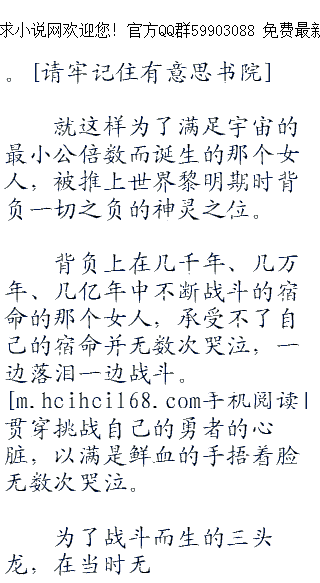 求小说网欢迎您! 官方QQ群59903088 免费最新
。[请牢记住有意思书院]
就这样为了满足宇宙的
最小公倍数而诞生的那个女
人，被推上世界黎明期时背
负一切之负的神灵之位。
背负上在几千年、几万
年、几亿年中不断战斗的宿
命的那个女人，承受不了自
己的宿命并无数次哭泣，一
边落泪一边战斗。
[m.hcihci168.com手机阅读|
贯穿挑战自己的勇者的心
脏，以满是鲜血的手捂着脸
无数次哭泣。
为了战斗而生的三头
龙，在当时无